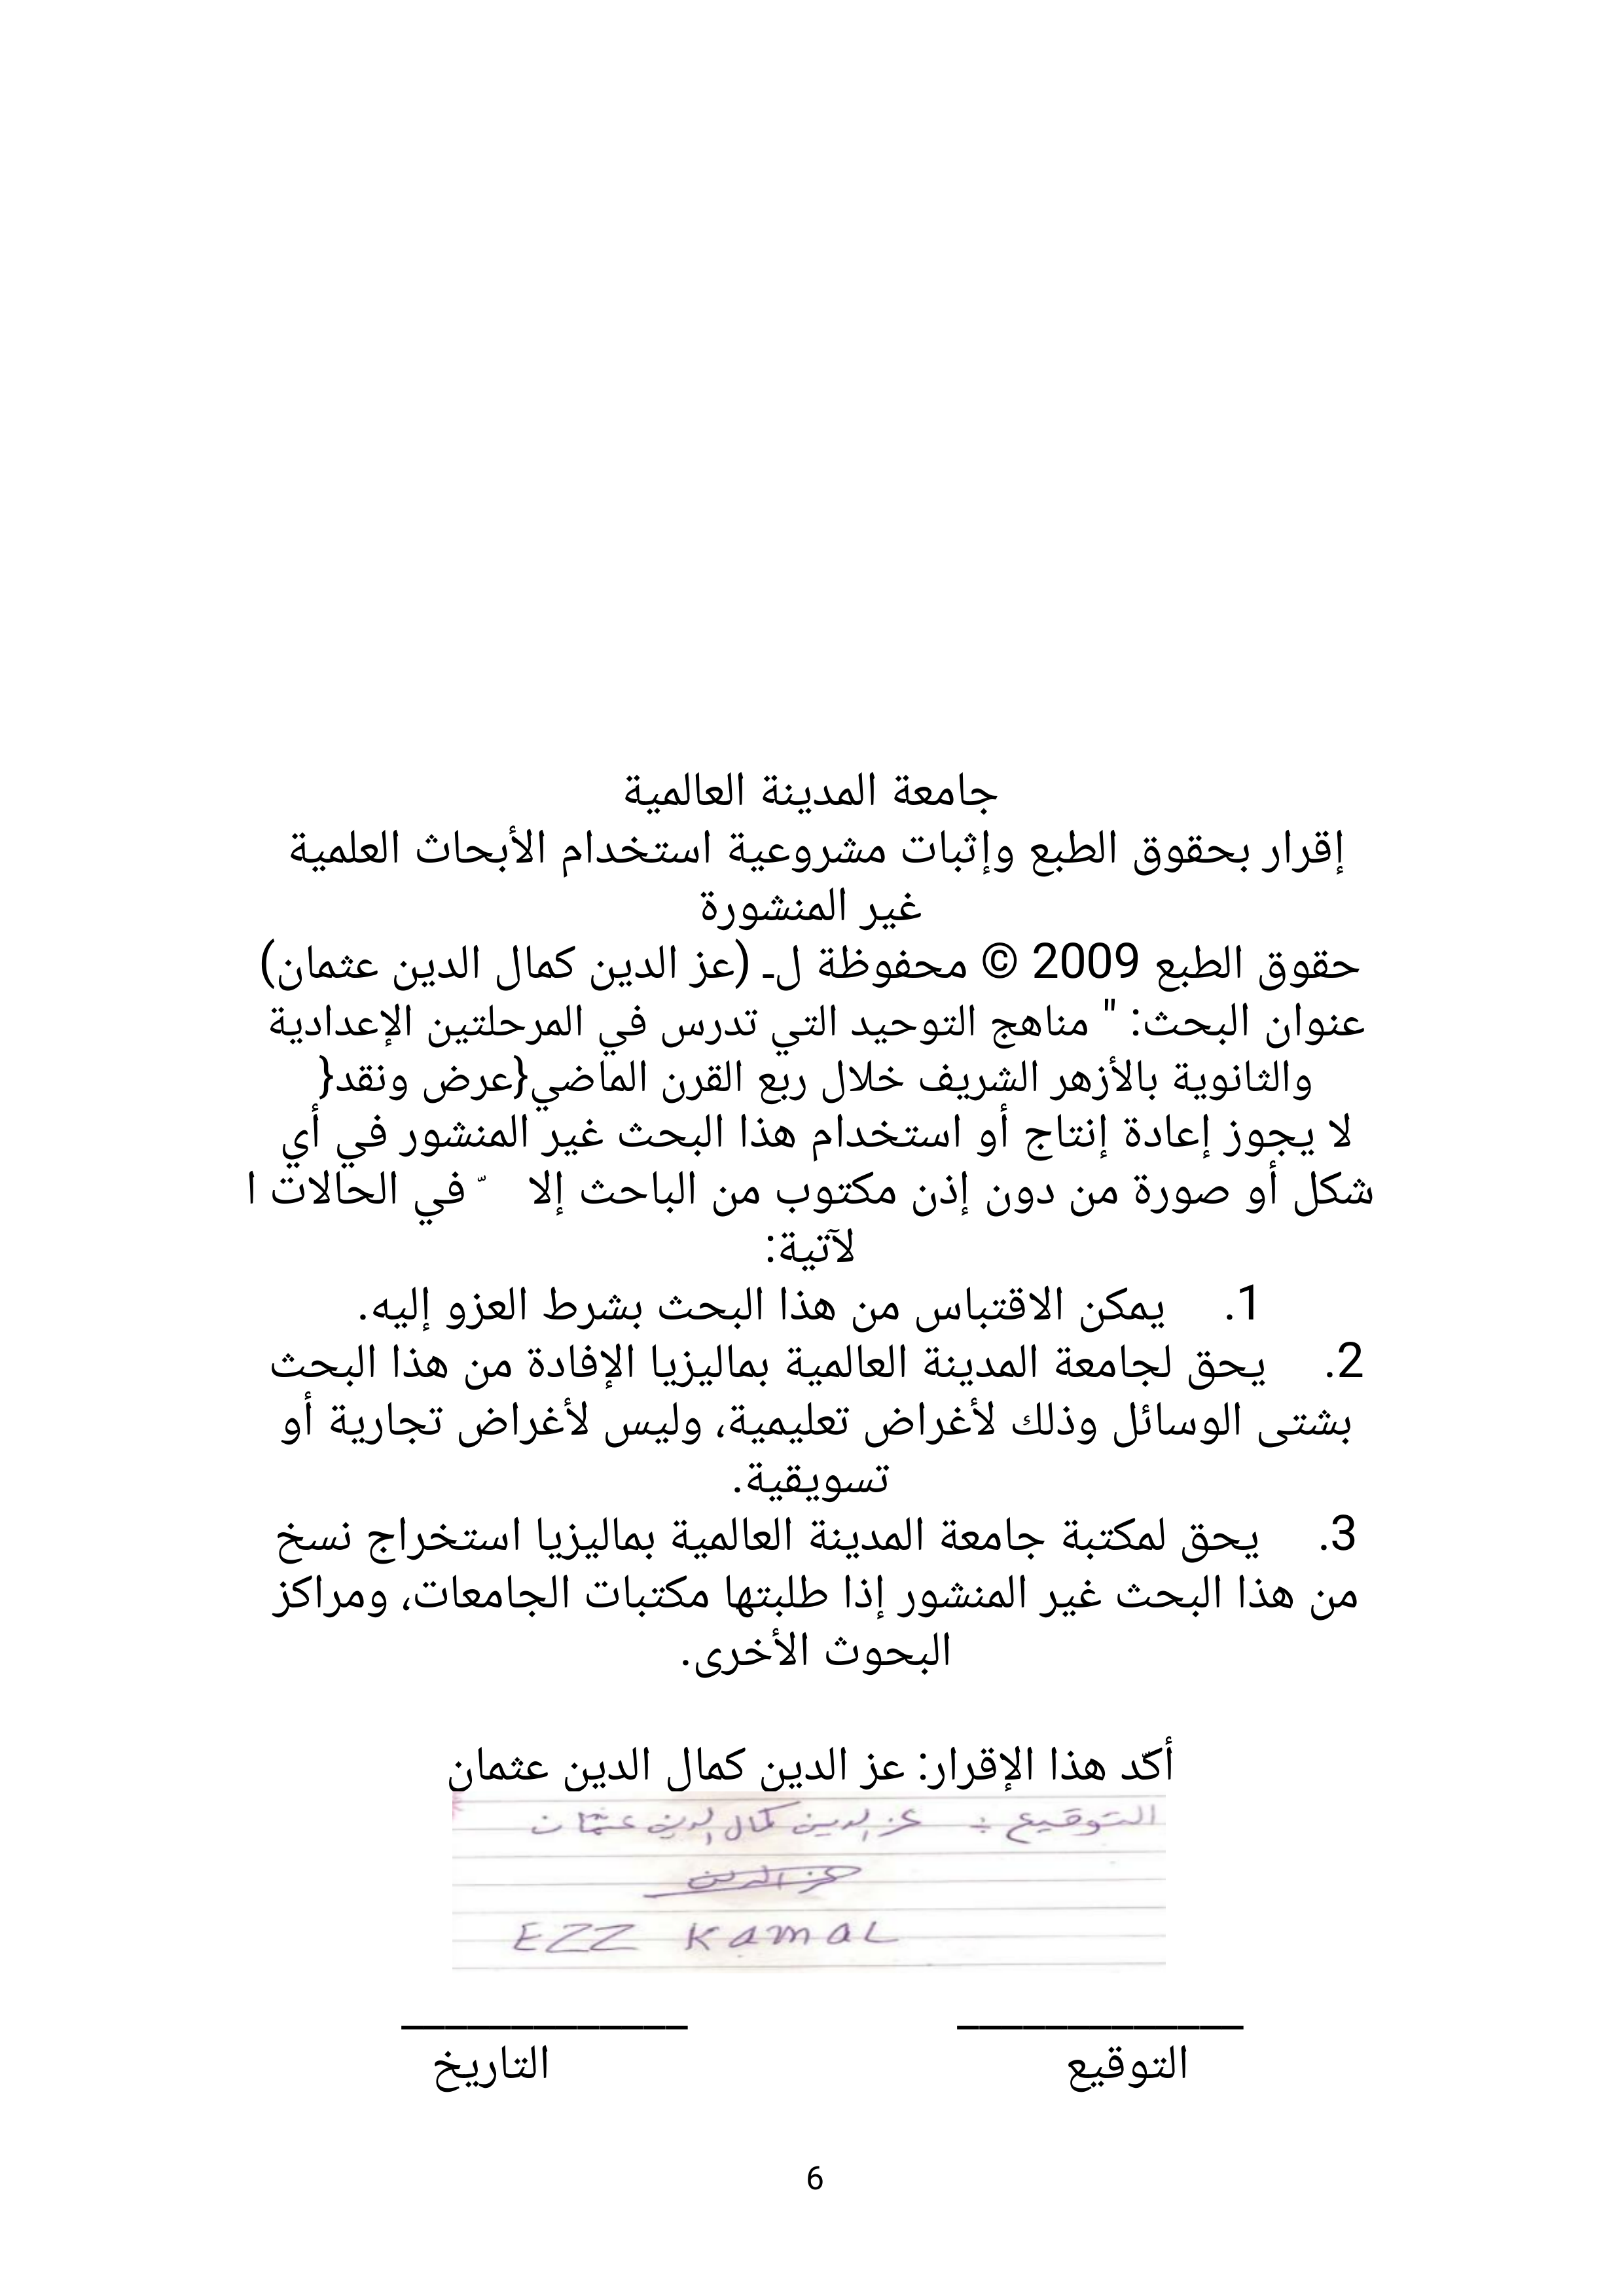 جامعة المدينة العالمية
إقرار بحقوق الطبع وإثبات مشروعية استخدام الأبحاث العلمية
غير المنشورة
حقوق الطبع 2009 © محفوظة لـ (عز الدين كمال الدين عثمان)
عنوان البحث: " مناهج التوحيد التي تدرس في المرحلتين الإعدادية
والثانوية بالأزهر الشريف خلال ربع القرن الماضي{عرض ونقد{
لا يجوز إعادة إنتاج أو استخدام هذا البحث غير المنشور في أي
شكل أو صورة من دون إذن مكتوب من الباحث إلا ّ في الحالات ا
لآتية:
1. يمكن الاقتباس من هذا البحث بشرط العزو إليه.
2. يحق لجامعة المدينة العالمية بماليزيا الإفادة من هذا البحث
بشتى الوسائل وذلك لأغراض تعليمية، وليس لأغراض تجارية أو
تسويقية.
3. يحق لمكتبة جامعة المدينة العالمية بماليزيا استخراج نسخ
من هذا البحث غير المنشور إذا طلبتها مكتبات الجامعات، ومراكز
البحوث الأخرى.
أكّد هذا الإقرار: عز الدين كمال الدين عثمان
التوقيع : عز الدين كمال الدين عثمان
عز الدين
EZZ KamaL
_____________ _____________
التوقيع التاريخ
6